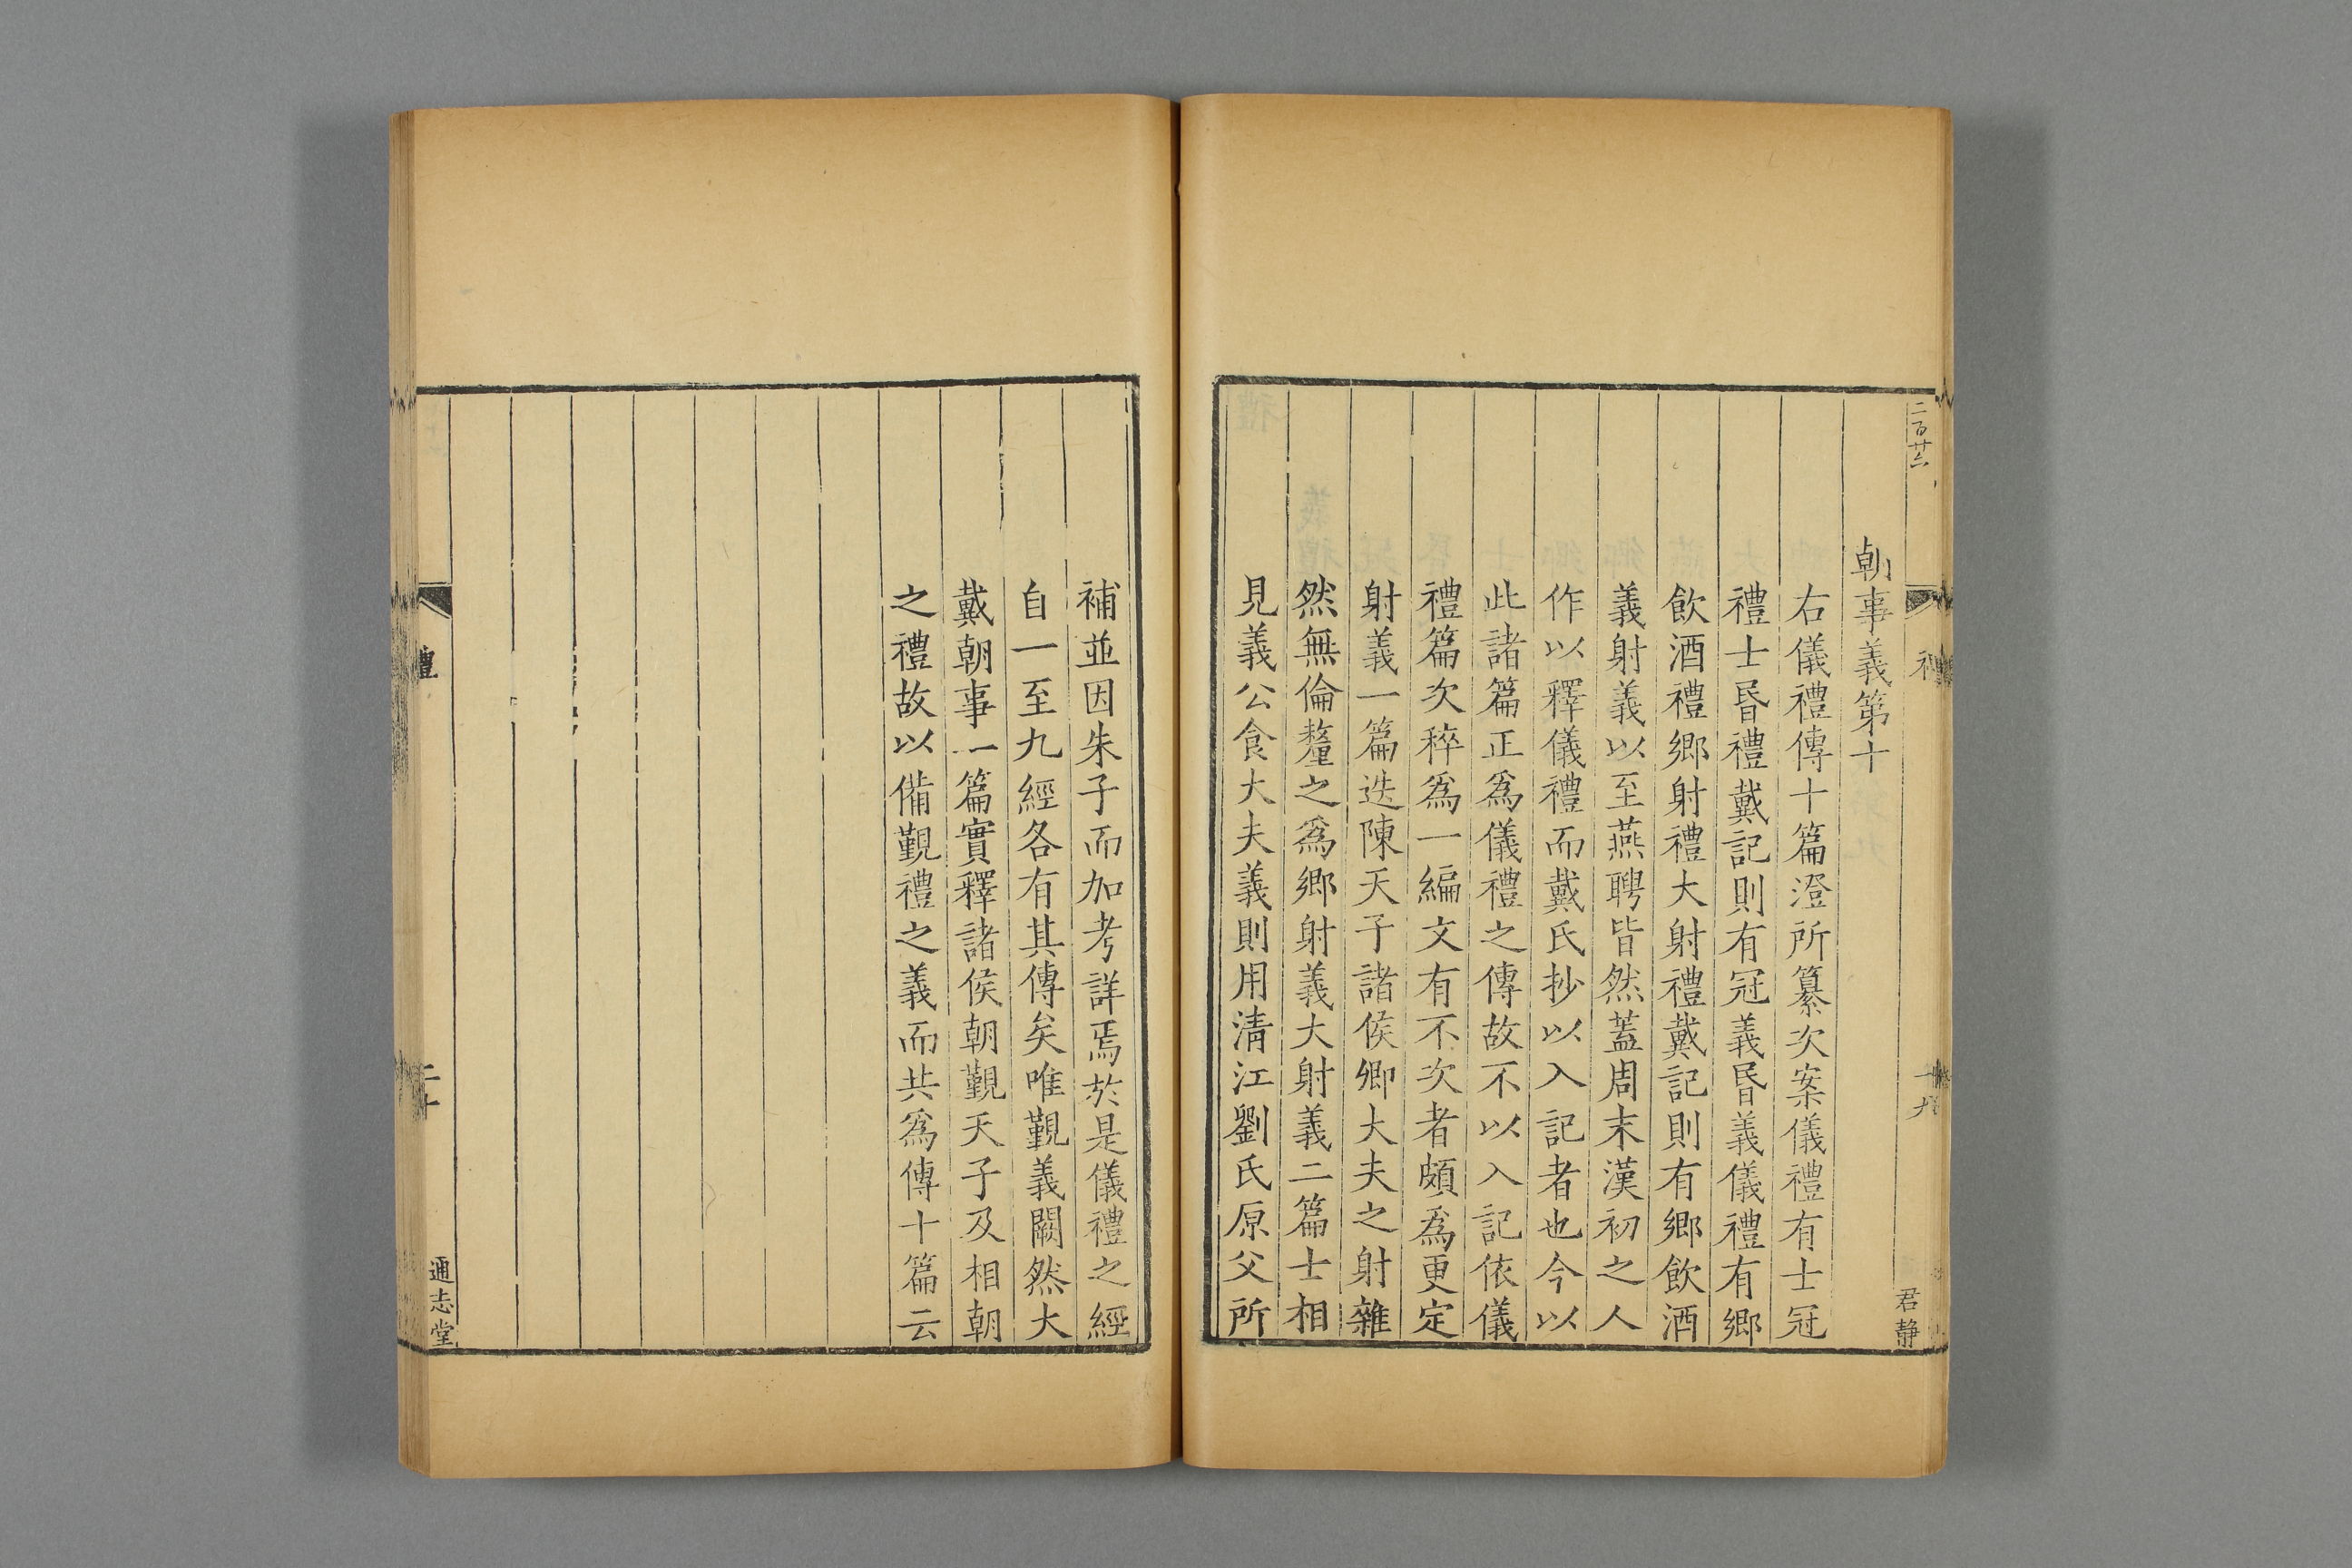 二百廿六
朝事義第十
右儀禮傳十篇澄所纂次案儀禮有士冠
禮士昏禮戴記則有冠義昏義儀禮有鄉
飲酒禮鄉射禮大射禮戴記則有鄉飲酒
義射義以至燕聘皆然蓋周末漢初之人
作以釋儀禮而戴氏抄以入記者也今以
此諸篇正爲儀禮之傳故不以入記依儀
禮篇次稡爲一編文有不次者頗爲更定
射義一篇迭陳天子諸侯卿大夫之射雜
然無倫釐之爲鄉射義大射義二篇士相
見義公食大夫義則用淸江劉氏原父所
君靜
補並因朱子而加考詳焉於是儀禮之經
自一至九經各有其傳矣唯覲義闕然大
戴朝事一篇實釋諸侯朝覲天子及相朝
之禮故以備覲禮之義而共爲傳十篇云
禮
二十
通志堂